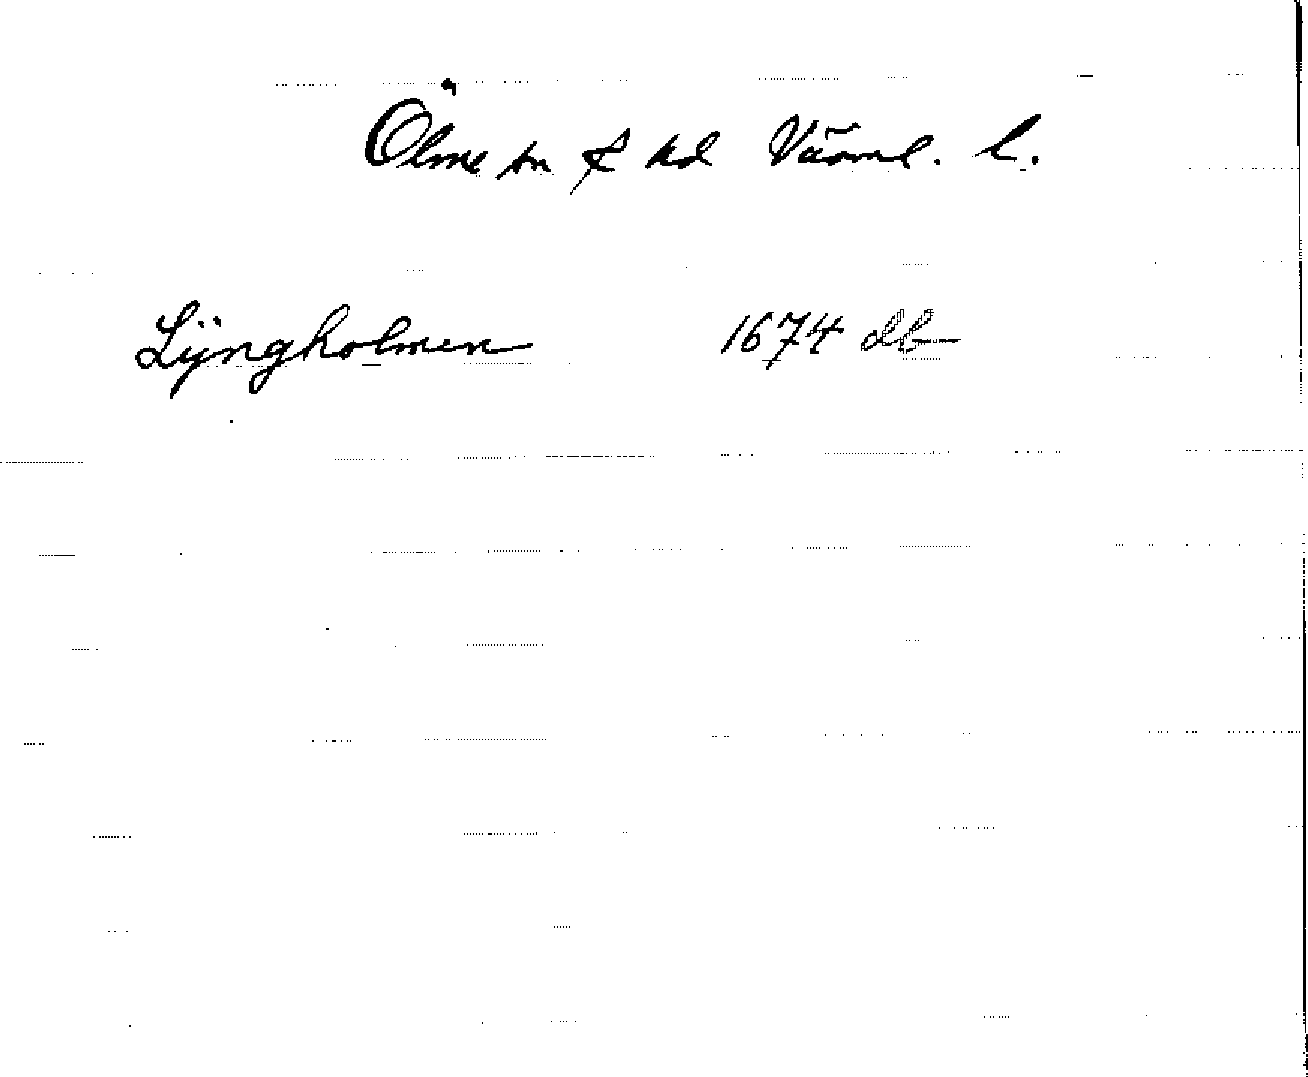 Ölme sn & hd Värml. l.
Lÿngholmen 1674 db